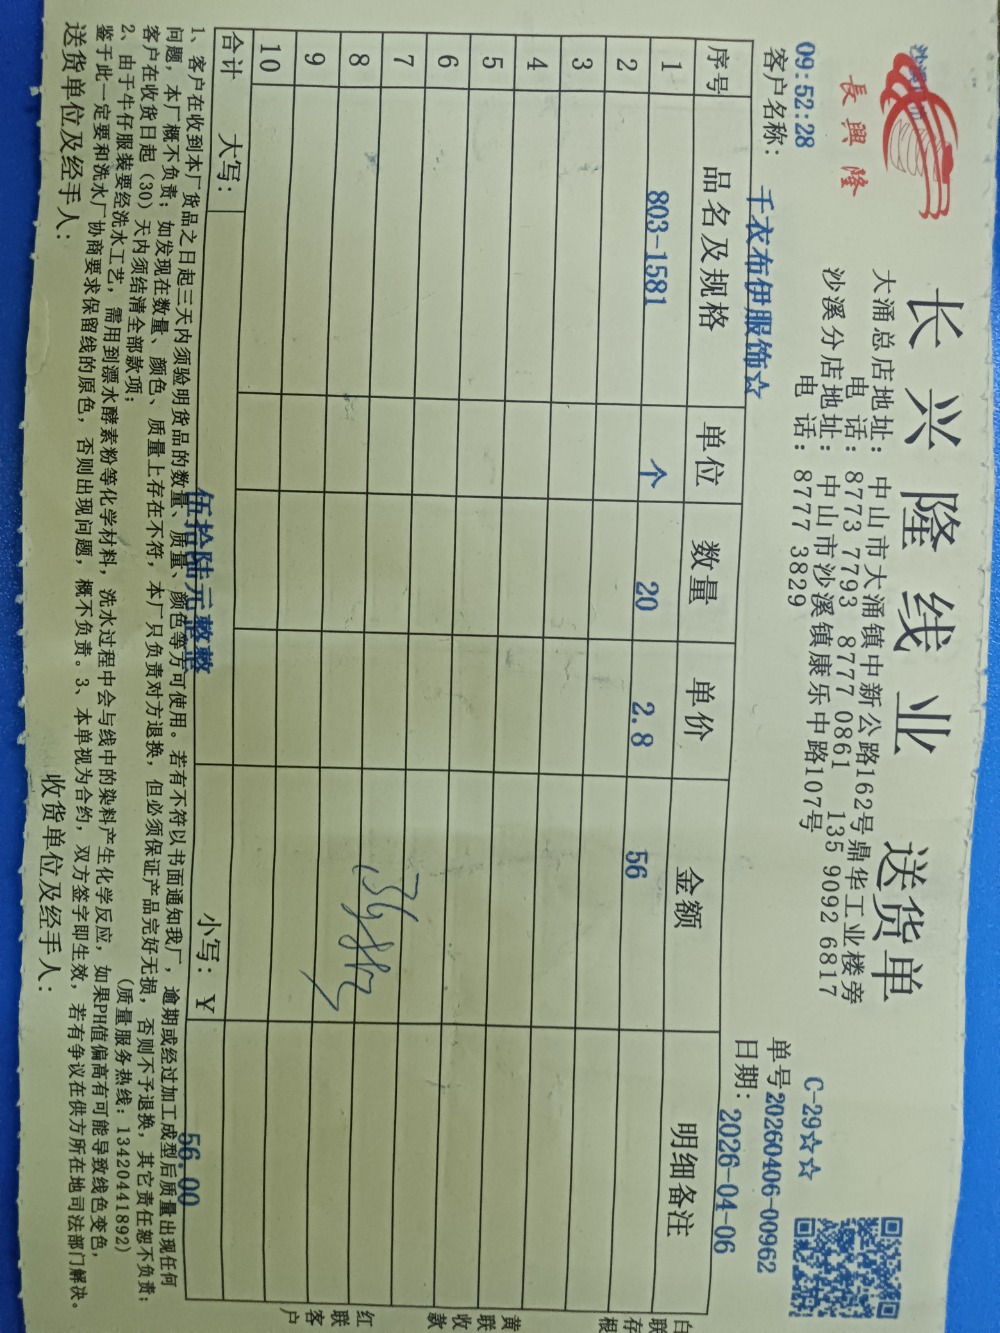 長興隆
长兴隆线业 送货单
大涌总店地址: 中山市大涌镇中新公路162号鼎华工业楼旁
电话: 8773 7793 8777 0861 135 9092 6817
沙溪分店地址: 中山市沙溪镇康乐中路107号
电话: 8777 3829
C-29☆☆
09:52:28
单号20260406-00962
客户名称: 千衣布伊服饰☆
日期: 2026-04-06
序号 品名及规格 单位 数量 单价 金额 明细备注
1 803-1581 个 20 2.8 56
2
3
4
5
6
7
8
9
10
合计 大写: 伍拾陆元整整 小写: ¥ 56.00
1、客户在收到本厂货品之日起三天内须验明货品的数量、质量、颜色等方可使用。若有不符以书面通知我厂,逾期或经过加工成型后质量出现任何
问题,本厂概不负责;如发现在数量、颜色、质量上存在不符,本厂只负责对方退换,但必须保证产品完好无损,否则不予退换,其它责任恕不负责;
客户在收货日起(30)天内须结清全部款项; (质量服务热线:13420441892)
2、由于牛仔服装要经洗水工艺,需用到漂水酵素粉等化学材料,洗水过程中会与线中的染料产生化学反应,如果PH值偏高有可能导致线色变色,
鉴于此一定要和洗水厂协商要求保留线的原色,否则出现问题,概不负责。3、本单视为合约,双方签字即生效,若有争议在供方所在地司法部门解决。
送货单位及经手人: 收货单位及经手人:
白联存根
黄联收款
红联客户